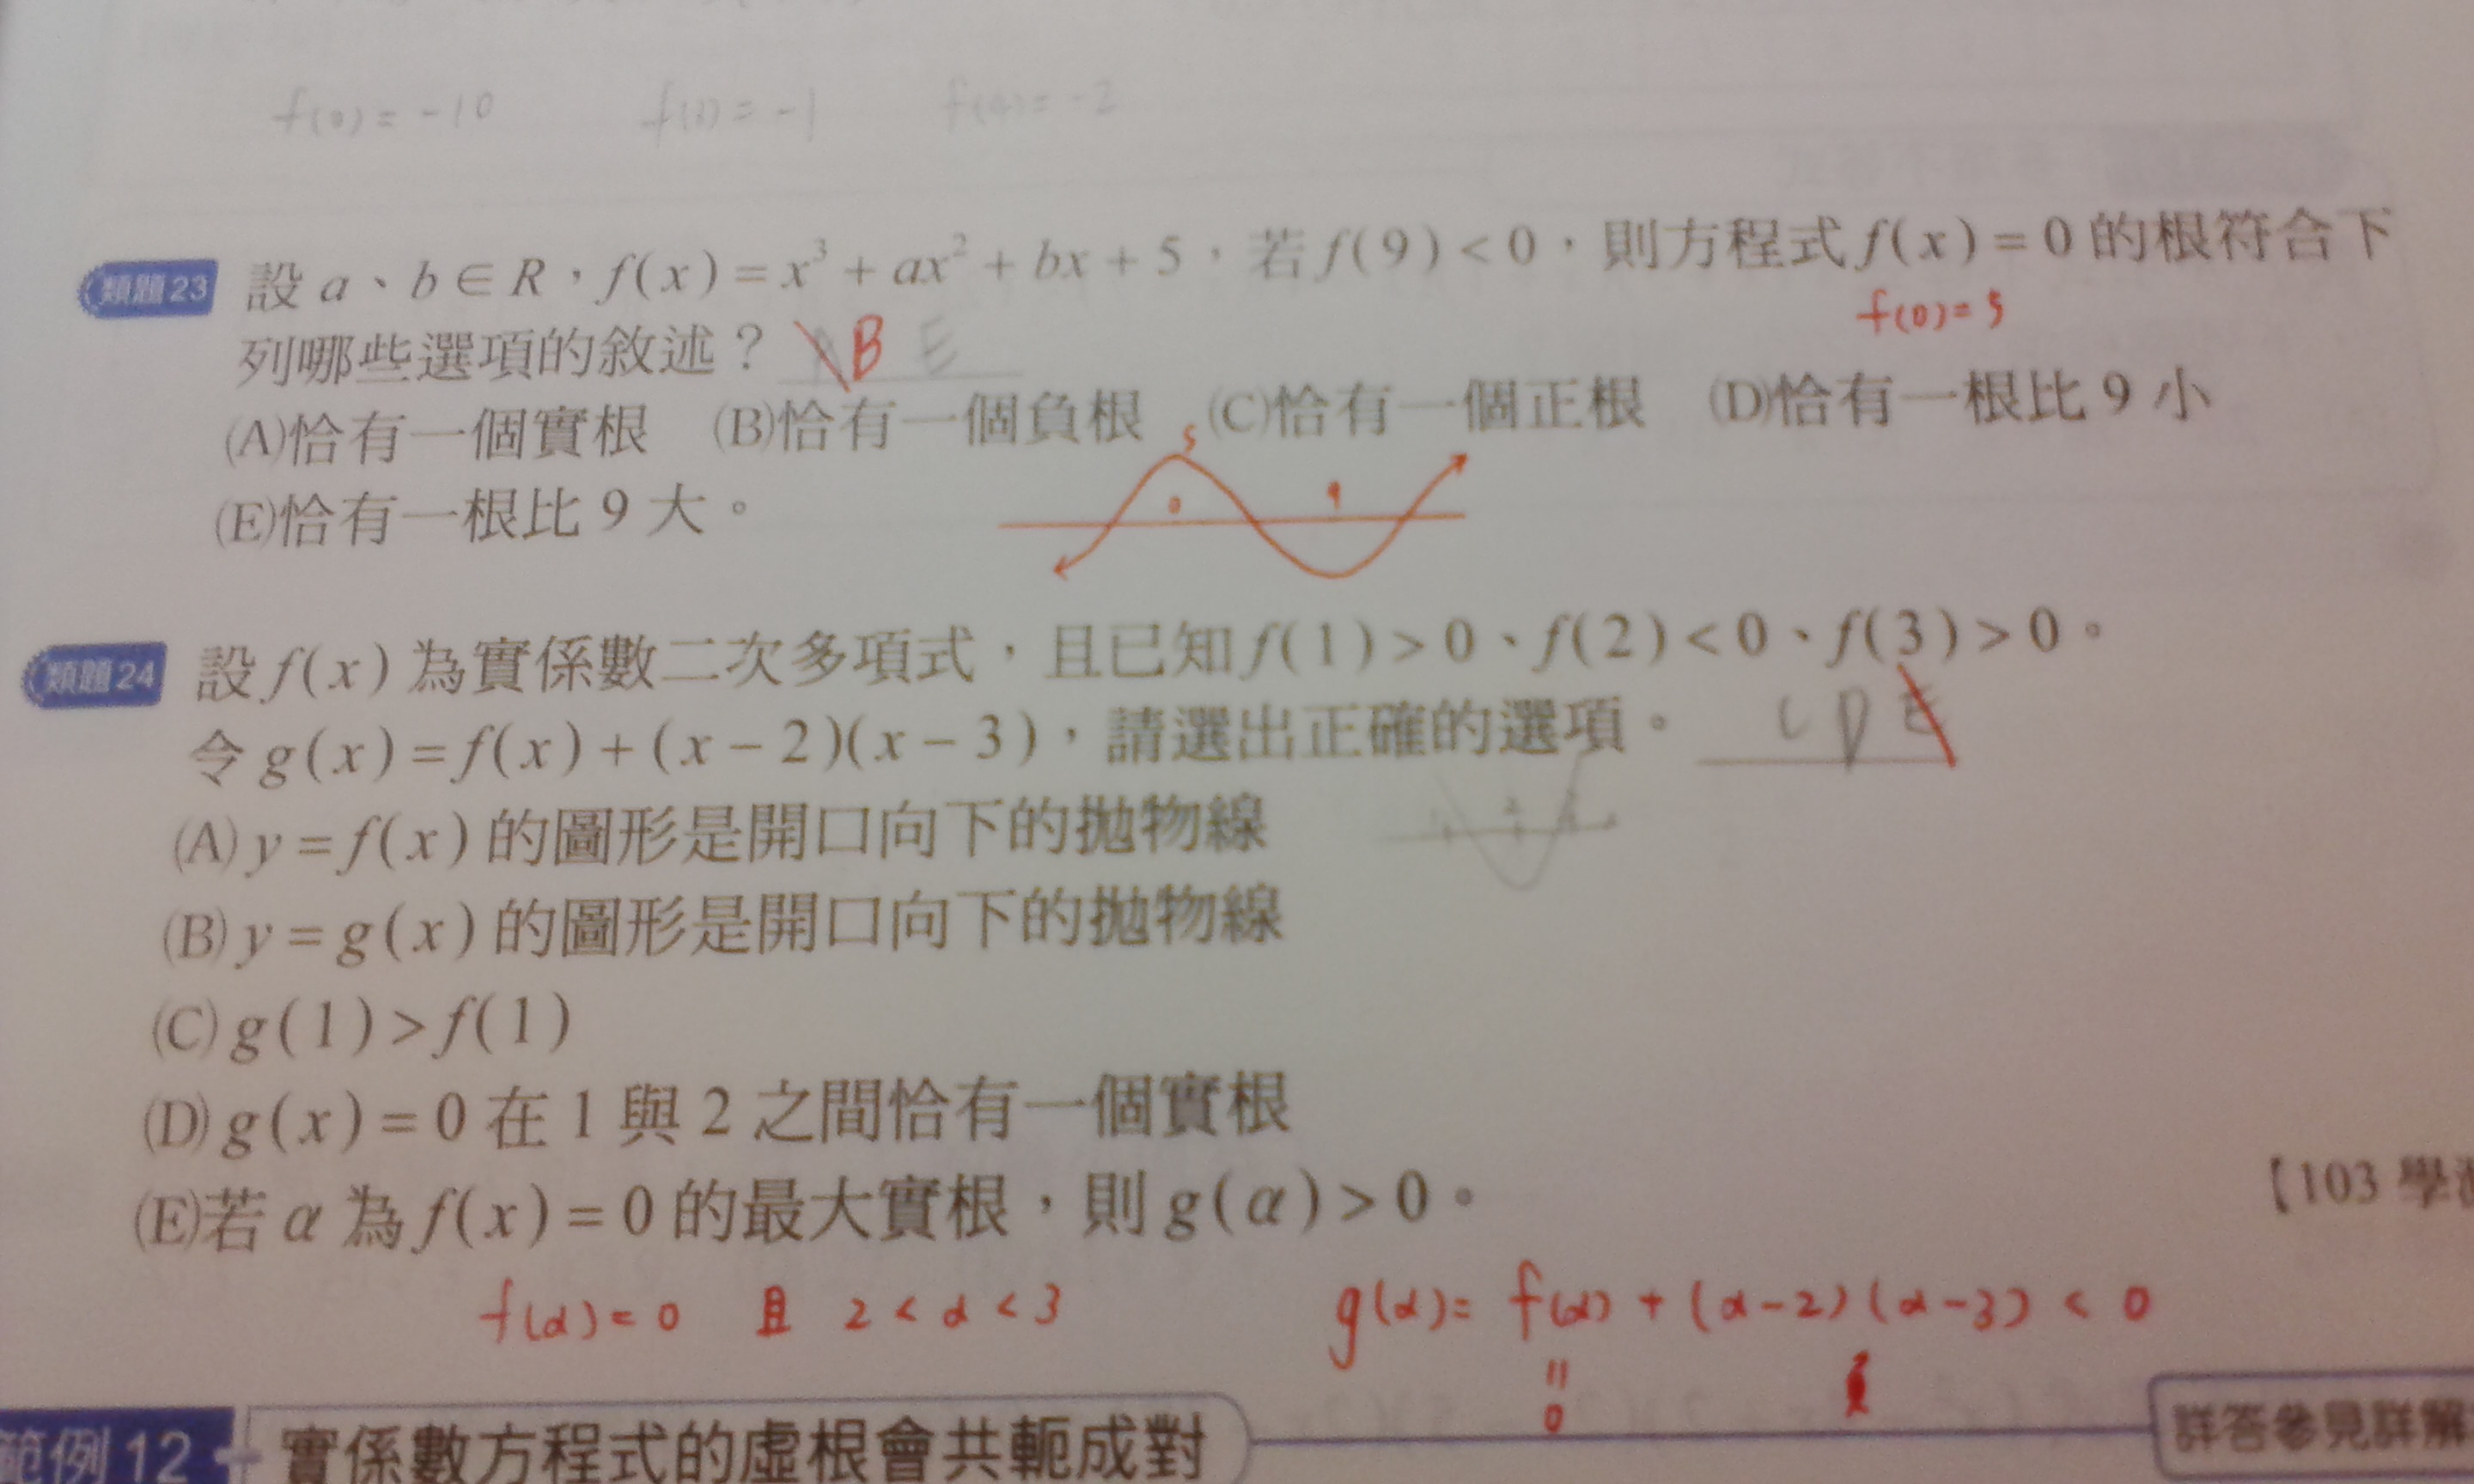 f(0) = -10 f(3) = -1 f(4) = -2
類題23 設 a、b ∈ R，f(x) = x³ + ax² + bx + 5，若 f(9) < 0，則方程式 f(x) = 0 的根符合下
f(0) = 5
列哪些選項的敘述？ A B E
(A)恰有一個實根 (B)恰有一個負根 (C)恰有一個正根 (D)恰有一根比 9 小
5
0 9
(E)恰有一根比 9 大。
類題24 設 f(x) 為實係數二次多項式，且已知 f(1) > 0、f(2) < 0、f(3) > 0。
令 g(x) = f(x) + (x - 2)(x - 3)，請選出正確的選項。 C D E
1 2 3
(A) y = f(x) 的圖形是開口向下的拋物線
(B) y = g(x) 的圖形是開口向下的拋物線
(C) g(1) > f(1)
(D) g(x) = 0 在 1 與 2 之間恰有一個實根
(E)若 α 為 f(x) = 0 的最大實根，則 g(α) > 0。
【103 學
f(α) = 0 且 2 < α < 3 g(α) = f(α) + (α - 2)(α - 3) < 0
=
0
範例 12 實係數方程式的虛根會共軛成對 詳答參見詳解